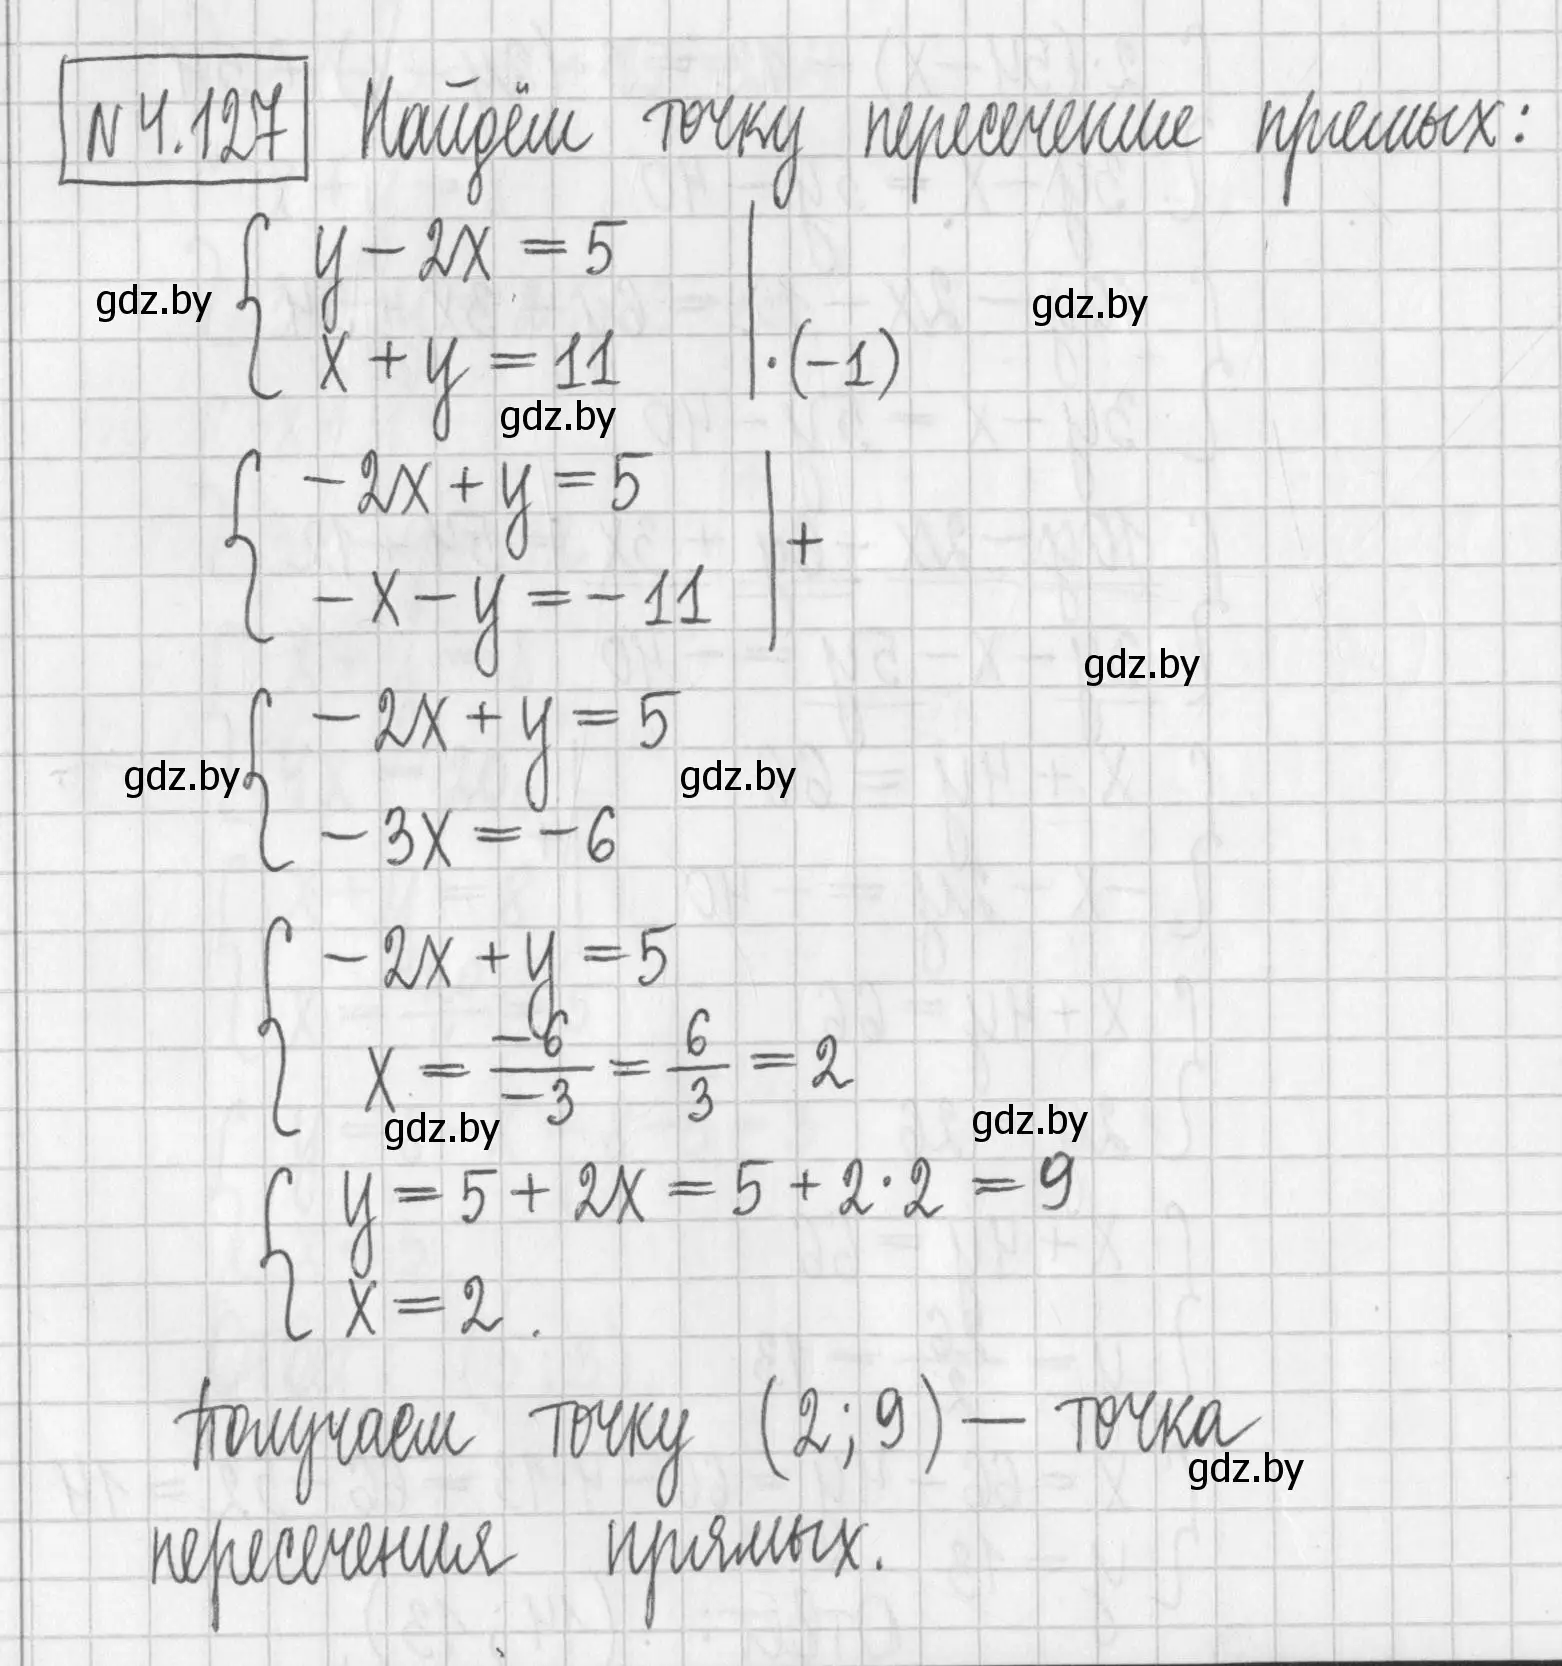 N 4.127 Найдём точку пересечение прямых:
{ y - 2x = 5
gdz.by gdz.by
x + y = 11 | ·(-1)
gdz.by
{ -2x + y = 5
| +
-x - y = -11
gdz.by
{ -2x + y = 5
gdz.by gdz.by
-3x = -6
{ -2x + y = 5
x = -6/-3 = 6/3 = 2
gdz.by gdz.by
{ y = 5 + 2x = 5 + 2·2 = 9
x = 2.
Получаем точку (2; 9) — точка
gdz.by
пересечения прямых.